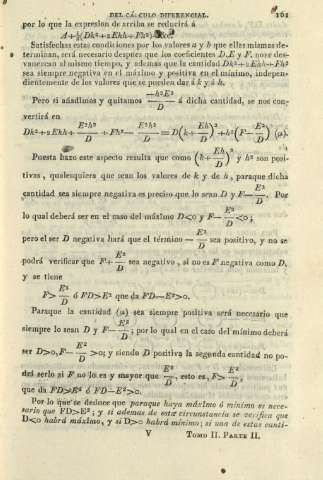 DEL CÁLCULO DIFERENCIAL. 161
por lo que la expresion de arriba se reducirá á
A+½(Dk²+2Ekh+Fh²)
Satisfechas estas condiciones por los valores a y b que ellas mismas de-
terminan, será necesario despues que los coeficientes D, E y F, no se des-
vanezcan al mismo tiempo, y ademas que la cantidad Dk²+2Ekh+Fh²
sea siempre negativa en el máximo y positiva en el mínimo, indepen-
dientemente de los valores que se pueden dar á k y á h.
Pero si añadimos y quitamos —h²E²/D á dicha cantidad, se nos con-
vertirá en
Dk²+2Ekh+E²h²/D+Fh²—E²h²/D=D(k+Eh/D)²+h²(F—E²/D) (a).
Puesta bazo este aspecto resulta que como (k+Eh/D)² y h² son posi-
tivas, qualesquiera que sean los valores de k y de h, paraque dicha
cantidad sea siempre negativa es preciso que lo sean D y F—E²/D. Por
lo qual deberá ser en el caso del máximo D<0 y F—E²/D<0;
pero el ser D negativa hará que el término —E²/D sea positivo, y no se
podrá verificar que F+E²/D sea negativo, si no es F negativa como D,
y se tiene
F>E²/D ó FD>E² que da FD—E²>0.
Paraque la cantidad (a) sea siempre positiva será necesario que
siempre lo sean D y F—E²/D; por lo qual en el caso del mínimo deberá
ser D>0, F—E²/D>0; y siendo D positiva la segunda cantidad no po-
drá serlo si F no lo es y mayor que E²/D, esto es, F>E²/D,
que da FD>E² ó FD—E²>0.
Por lo que se deduce que paraque haya máximo ó mínimo es nece-
sario que FD>E²; y si ademas de esta circunstancia se verifica que
D<0 habrá máximo, y si D>0 habrá mínimo; si una de estas canti-
V TOMO II. PARTE II.